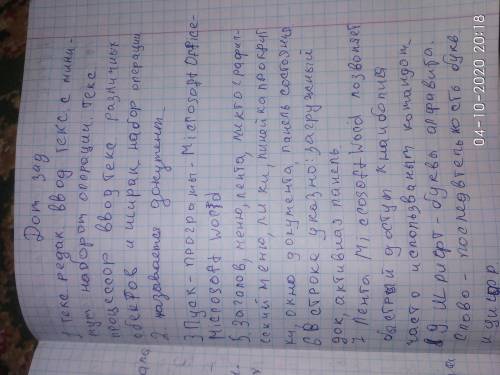 Дом зад
1 Текс редак ввод текс. с мини-
пут наборот операции. текс
процессор ввод тека различных
обектов и широк набор операции
2 называется документ.
3 Пуск-программы. Microsoft Office-
Microsoft World
5. Заголов, меню, лента пиктографич-
ский меню, лики, линойка прокрут
ки, окно документа, панель состояния
6 В строке указано: загружный
док, активная панель
7 Лента Microsoft World позволяет
быстрый доступ к наиболие
часто использваным командам
8 9 Шрифт - буквы алфавита.
Слово - последвтельность букв
и цифр
04-10-2020 22:44